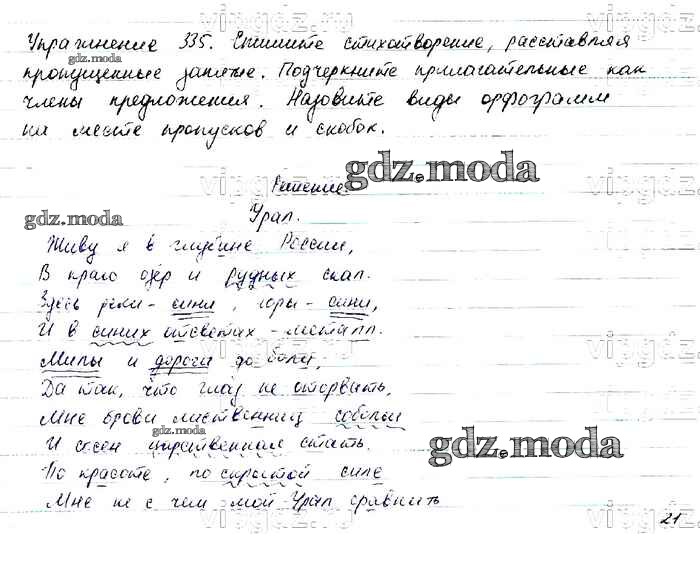 Упражнение 335. Спишите стихотворение, расставляя
пропущенные запятые. Подчеркните прилагательные как
члены предложения. Назовите виды орфограмм
на месте пропусков и скобок.
gdz.moda
gdz.moda
Решение
gdz.moda
Урал.
Живу я в глубине России,
В краю озёр и рудных скал.
Здесь реки - сини, горы - сини,
И в синих отсветах - металл.
Милы и дороги до боли,
Да так, что глаз не оторвать,
Мне брови лиственниц собольи
gdz.moda
И сосен царственная стать.
gdz.moda
По красоте, по скрытой силе
Мне не с чем мой Урал сравнить
21